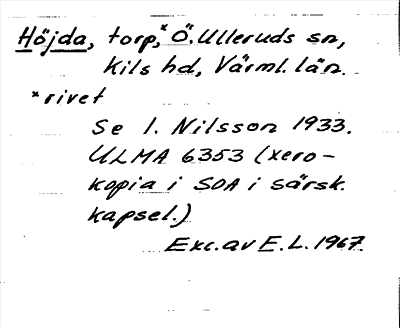 Höjda, torp,* Ö. Ulleruds sn,
Kils hd, Värml. län.
* rivet
Se I. Nilsson 1933.
ULMA 6353 (xero-
kopia i SOA i särsk.
kapsel.)
Exc. av E.L. 1967.